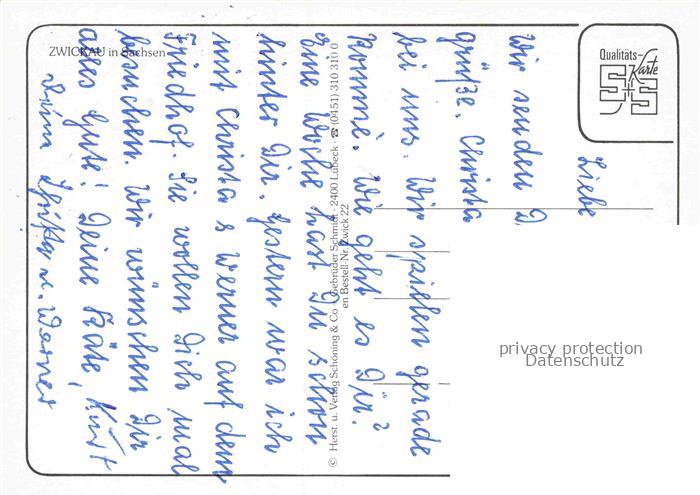 ZWICKAU in Sachsen
Qualitäts-
Karte
S+S
Liebe
wir senden D
grüße. Christa
bei uns. Wir spielen gerade
Rommé. Wie geht es Dir?
Eine Woche hast Du schon
hinter Dir. Gestern war ich
mit Christa & Werner auf dem
Friedhof. Sie wollen Dich mal
besuchen. Wir wünschen Dir
alles Gute! Deine Käte, Kurt
u. Werner
© Herst. u. Verlag Schöning & Co · Gebrüder Schmidt · 2400 Lübeck · ☎ (0451) 310 310 0
en Bestell-Nr. Zwick 22
privacy protection
Datenschutz